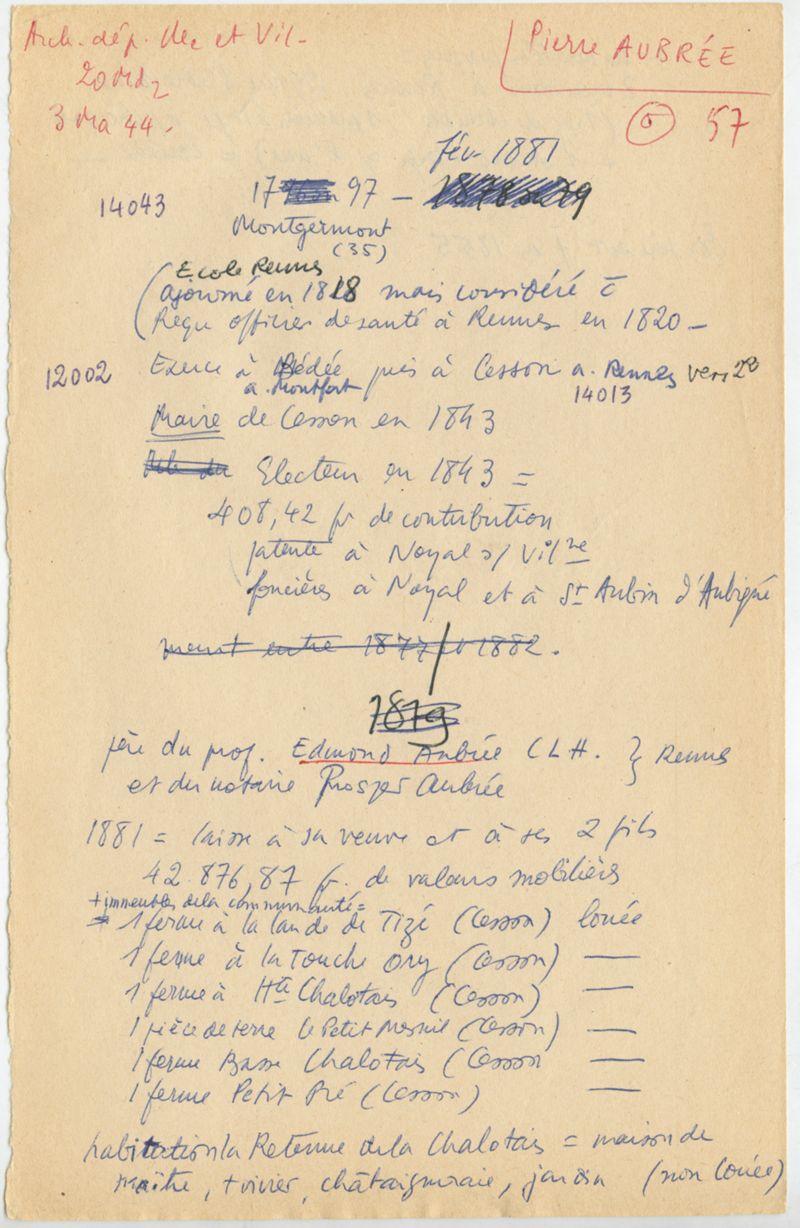 Arch. dép. Ille et Vil-
20 Md2
3 Ma 44.
Pierre AUBRÉE
57
fév. 1881
14043
17 97 —
Montgermont
(35)
Ecole Rennes
(ajourné en 1818 mais considéré c̄
Reçu officier de santé à Rennes en 1820 —
12002
Exerce à Bédée puis à Cesson a. Rennes vers 28
a. Montfort
14013
Maire de Cesson en 1843
Electeur en 1843 =
408,42 fr de contribution
patente à Noyal s/ Vilne
foncières à Noyal et à St Aubin d'Aubigné
meurt entre 1877 et 1882.
1879
père du prof. Edmond Aubrée CLH. } Rennes
et du notaire Prosper Aubrée
1881 = laisse à sa veuve et à ses 2 fils
42.876,87 fr. de valeurs mobilières
+ immeubles de la communauté =
1 ferme à la lande de Tizé (Cesson) louée
1 ferme à la Touche Ory (Cesson) —
1 ferme à Hte Chalotais (Cesson) —
1 pièce de terre le Petit Mesnil (Cesson) —
1 ferme Basse Chalotais (Cesson —
1 ferme Petit Pré (Cesson) —
habitation la Retenue de la Chalotais = maison de
maître, + vivier, châtaigneraie, jardin (non louée)